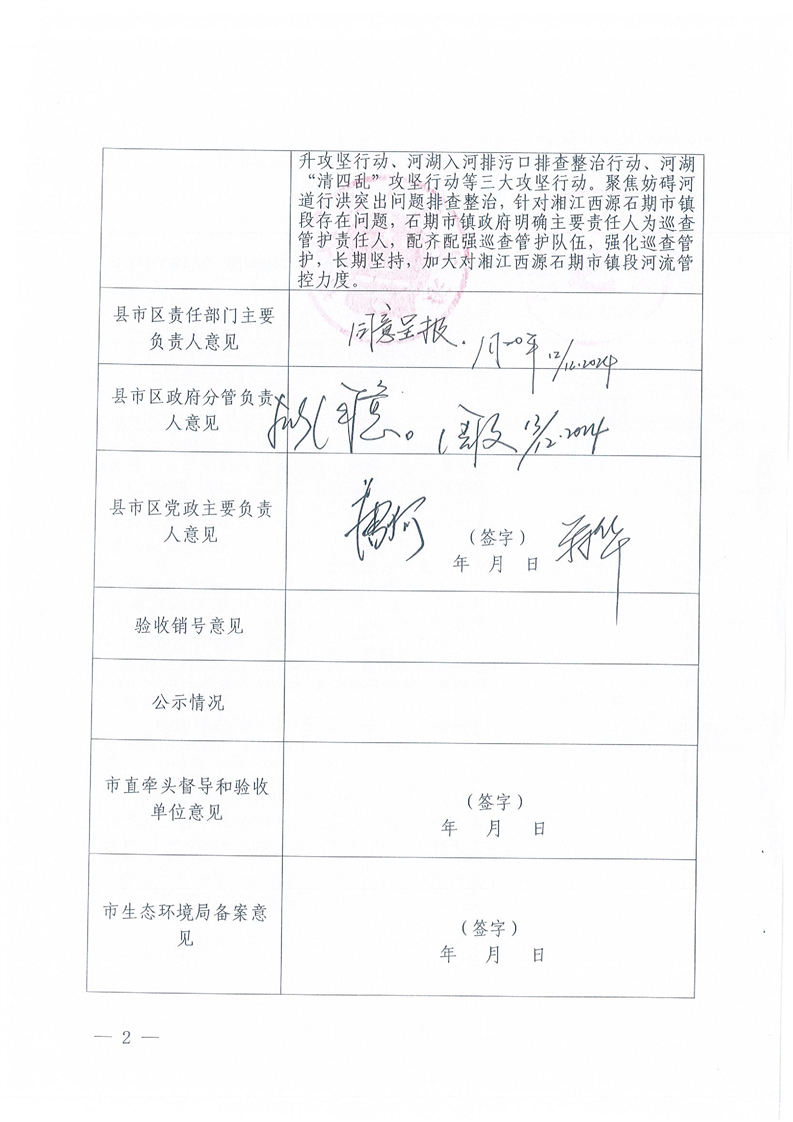 升攻坚行动、河湖入河排污口排查整治行动、河湖
“清四乱”攻坚行动等三大攻坚行动。聚焦妨碍河
道行洪突出问题排查整治，针对湘江西源石期市镇
段存在问题，石期市镇政府明确主要责任人为巡查
管护责任人，配齐配强巡查管护队伍，强化巡查管
护，长期坚持，加大对湘江西源石期市镇段河流管
控力度。
县市区责任部门主要
负责人意见
同意呈报.
12/12.2024
县市区政府分管负责
人意见
同意。
13/12.2024
县市区党政主要负责
人意见
（签字）
年 月 日
验收销号意见
公示情况
市直牵头督导和验收
单位意见
（签字）
年 月 日
市生态环境局备案意
见
（签字）
年 月 日
— 2 —